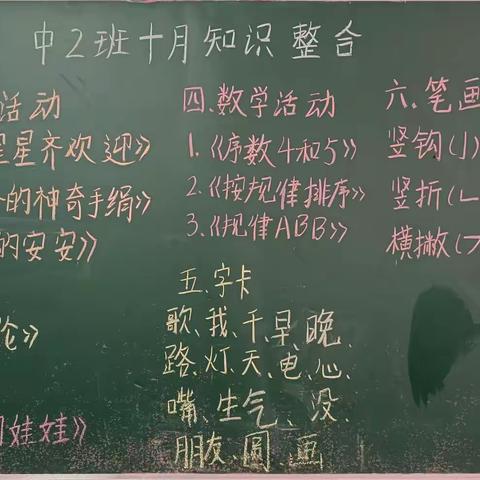 中2班十月知识整合
活动
星星齐欢迎》
的神奇手绢》
的安安》
论》
娃娃》
四、数学活动
1.《序数4和5》
2.《按规律排序》
3.《规律ABB》
五、字卡
歌、我、千、早、晚、
路、灯、天、电、心、
嘴、生气、没、
朋友、圆、画
六、笔画
竖钩(亅)
竖折(ㄴ
横撇(フ